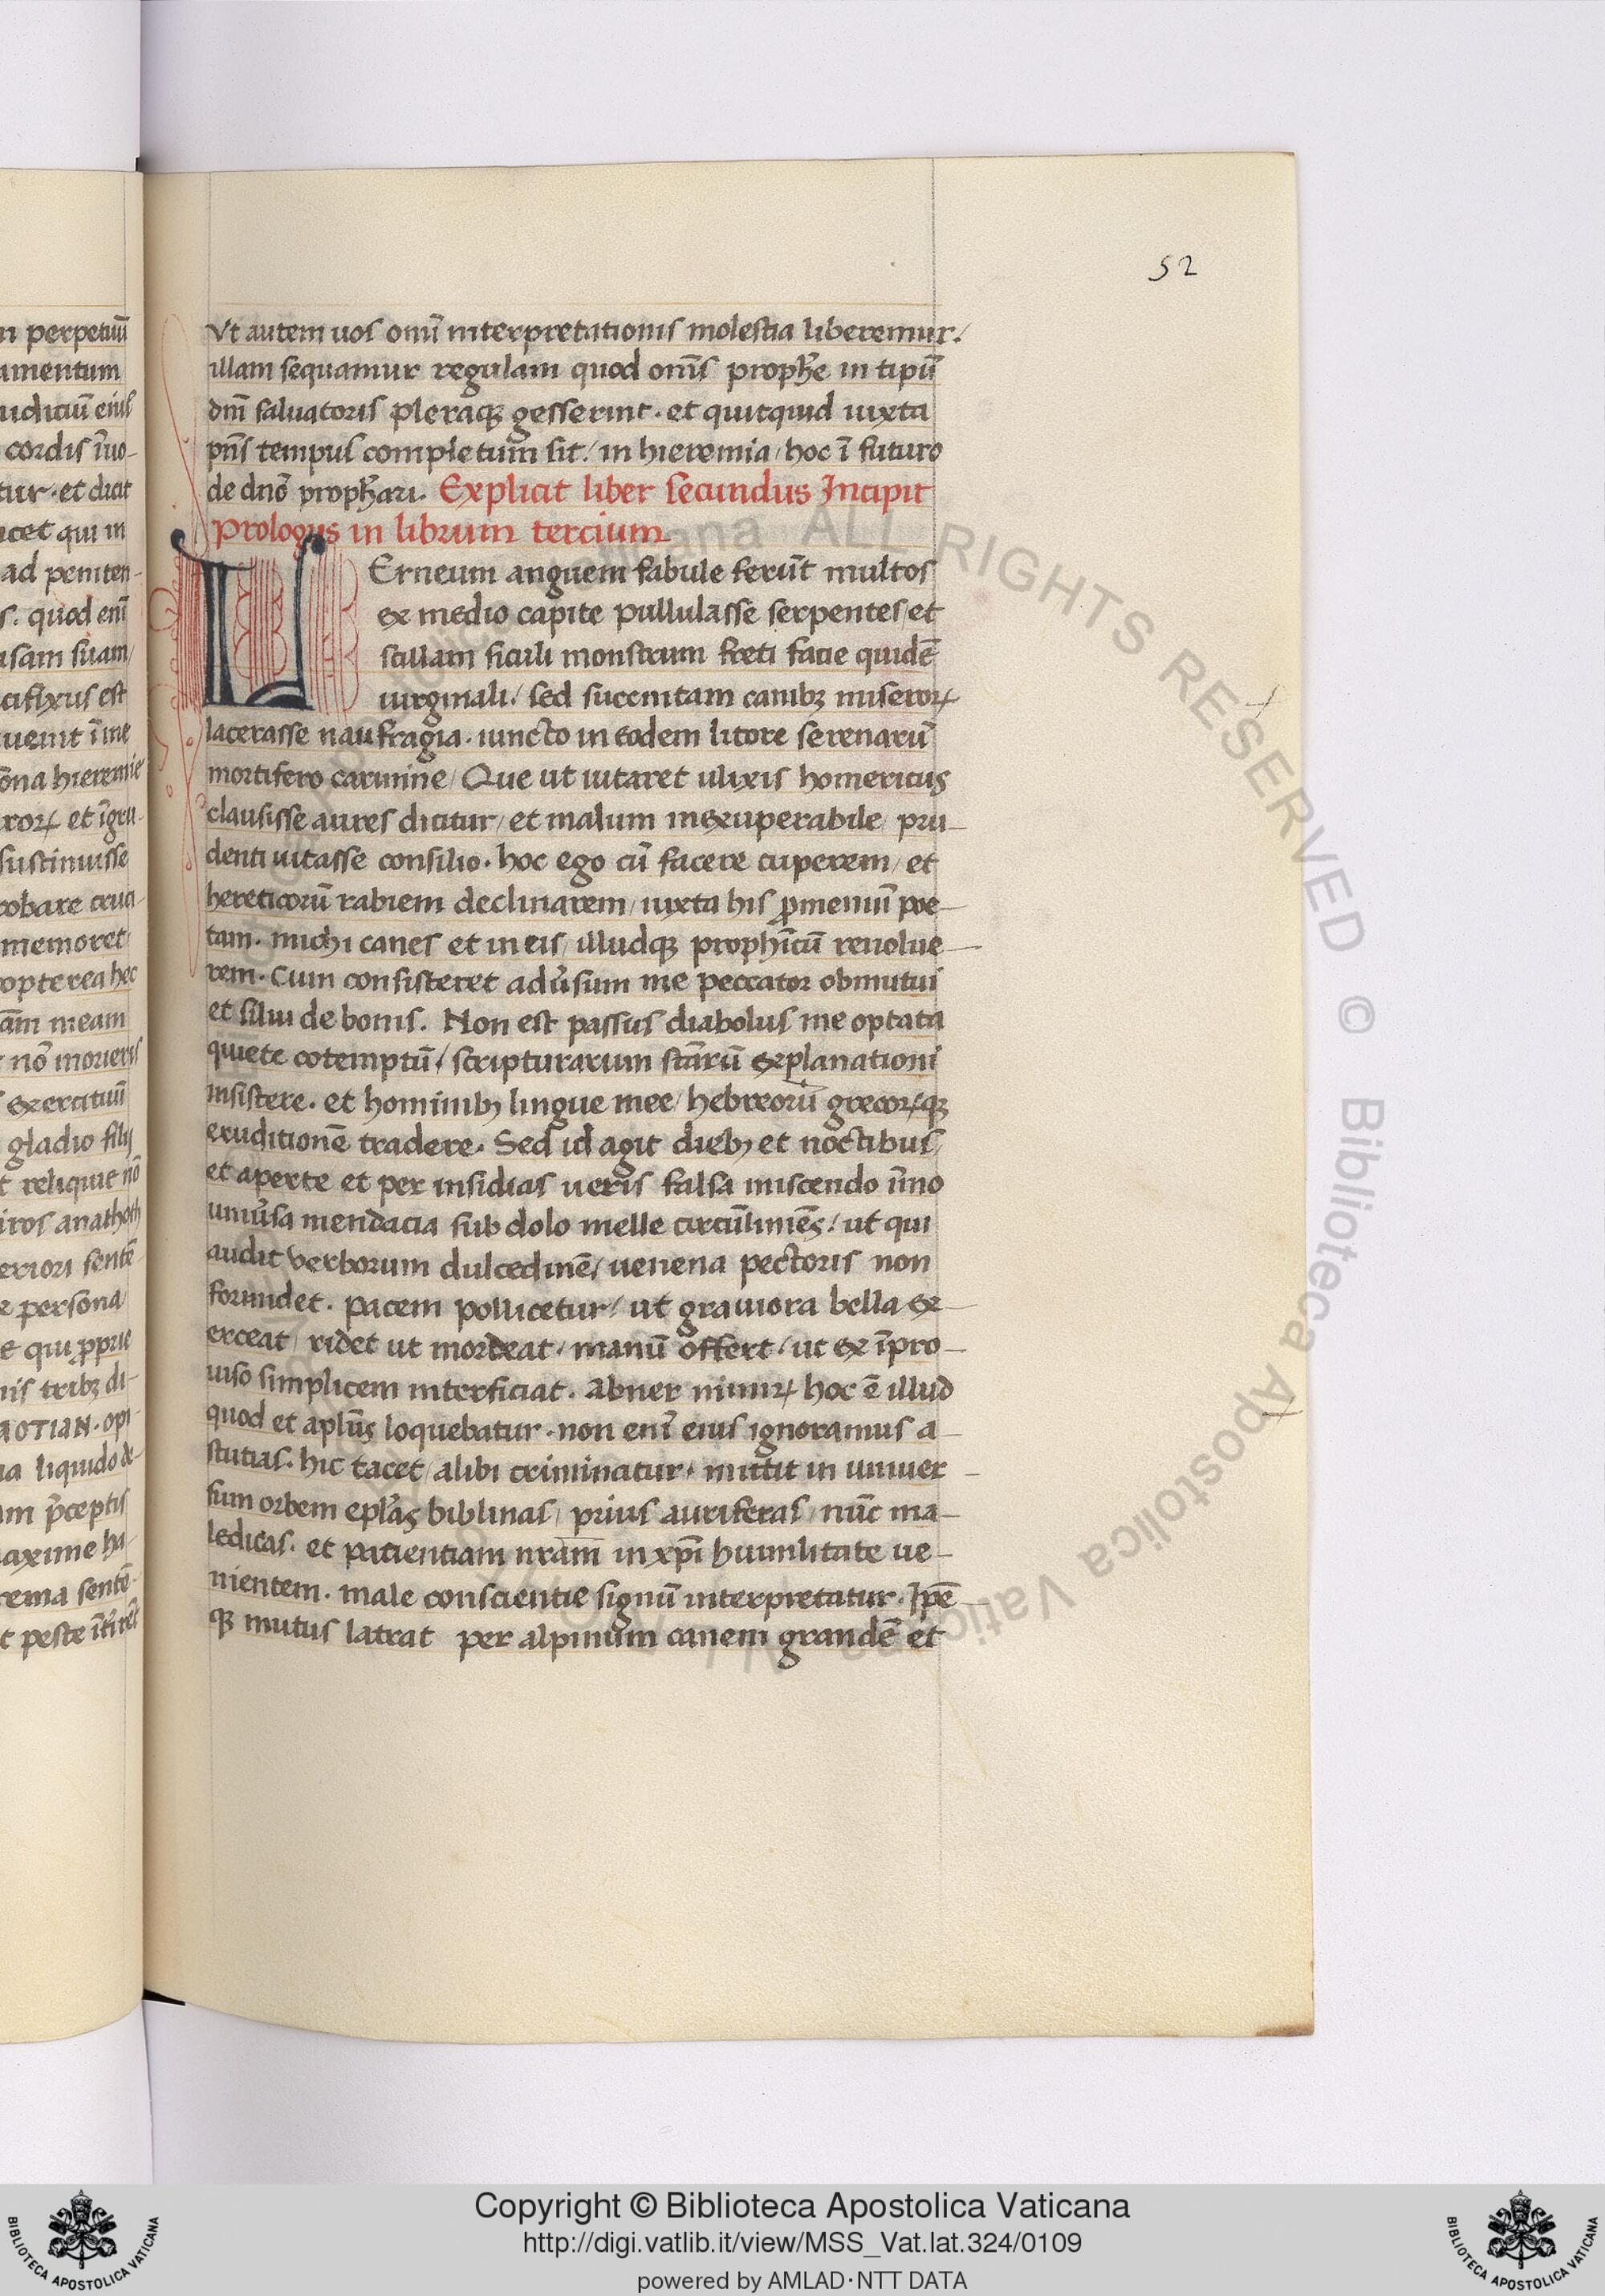 n perpetuū
amentum
udiciū eius
cordis ĩuo-
tur. et dicit
acet qui in
ad peniten-
s. quod enī
usam suam/
cifixus est
uenit ī me
ona hieremie
rorꝝ et īgru-
sustinuisse
robare cruci-
memoret/
opterea hec
ām meam
nō moueris
exercituū
gladio filij
t reliquit nō
iros anathoth
eriori sentē-
e persona/
e qui ꝓprie
nis tribꝫ di-
AOTIAN. opi-
ia liquido de-
am p̃ceptis
axime ha-
rema sentē-
52
Vt autem uos omī interpretationis molestia liberemur/
illam sequamur regulam quod om̄s proph̄e in tipū
dn̄i saluatoris pleraqꝫ gesserint. et quicquid iuxta
pn̄s tempus completum sit/ in hieremia/ hoc ī futuro
de dn̄o proph̄ari. Explicit liber secundus Incipit
Prologus in librum tercium
LErneum anguem fabule ferūt multos
ex medio capite pullulasse serpentes/ et
scillam siculi monstrum freti facie quidē
uirginali/ sed succintam canibꝫ miserorꝝ
lacerasse naufragia. iuncto in eodem litore serenarū
mortifero carmine/ Que ut uitaret ulixis homericus
clausisse aures dicitur/ et malum inexuperabile/ pru-
denti uitasse consilio. hoc ego cū facere cuperem/ et
hereticorū rabiem declinarem/ iuxta his ꝓmeniū poe-
tam. michi canes et in eis/ illudqꝫ proph̄icū reuolue-
rem. Cum consisteret adũsum me peccator obmutui
et silui de bonis. Non est passus diabolus me optata
quiete cotemptū/ scripturarum sc̄arū explanationi
insistere. et hominibꝫ lingue mee/ hebreorū grecorꝝqꝫ
eruditionē tradere. Sed id agit diebꝫ et noctibus/
et aperte et per insidias ueris falsa miscendo īmo
uniũsa mendacia sub dolo melle circūliniēs/ ut qui
audit verborum dulcedinē/ uenena pectoris non
formidet. pacem pollicetur/ ut grauiora bella ex-
erceat/ ridet ut mordeat/ manū offert/ ut ex īpro-
uiso simplicem interficiat. Abner nimirꝝ hoc ē illud
quod et apl̄us loquebatur. non enī eius ignoramus a-
stutias. hic tacet/ alibi criminatur. mittit in uniuer-
sum orbem epl̄as biblinas/ prius auriferas/ nūc ma-
ledicas. et patientiam nr̄am in xp̄i humilitate ue-
nientem. male conscientie signū interpretatur. Ip̄e-
qꝫ mutus latrat per alpinum canem grandē et
Copyright © Biblioteca Apostolica Vaticana
http://digi.vatlib.it/view/MSS_Vat.lat.324/0109
powered by AMLAD·NTT DATA
BIBLIOTECA APOSTOLICA VATICANA
BIBLIOTECA APOSTOLICA VATICANA